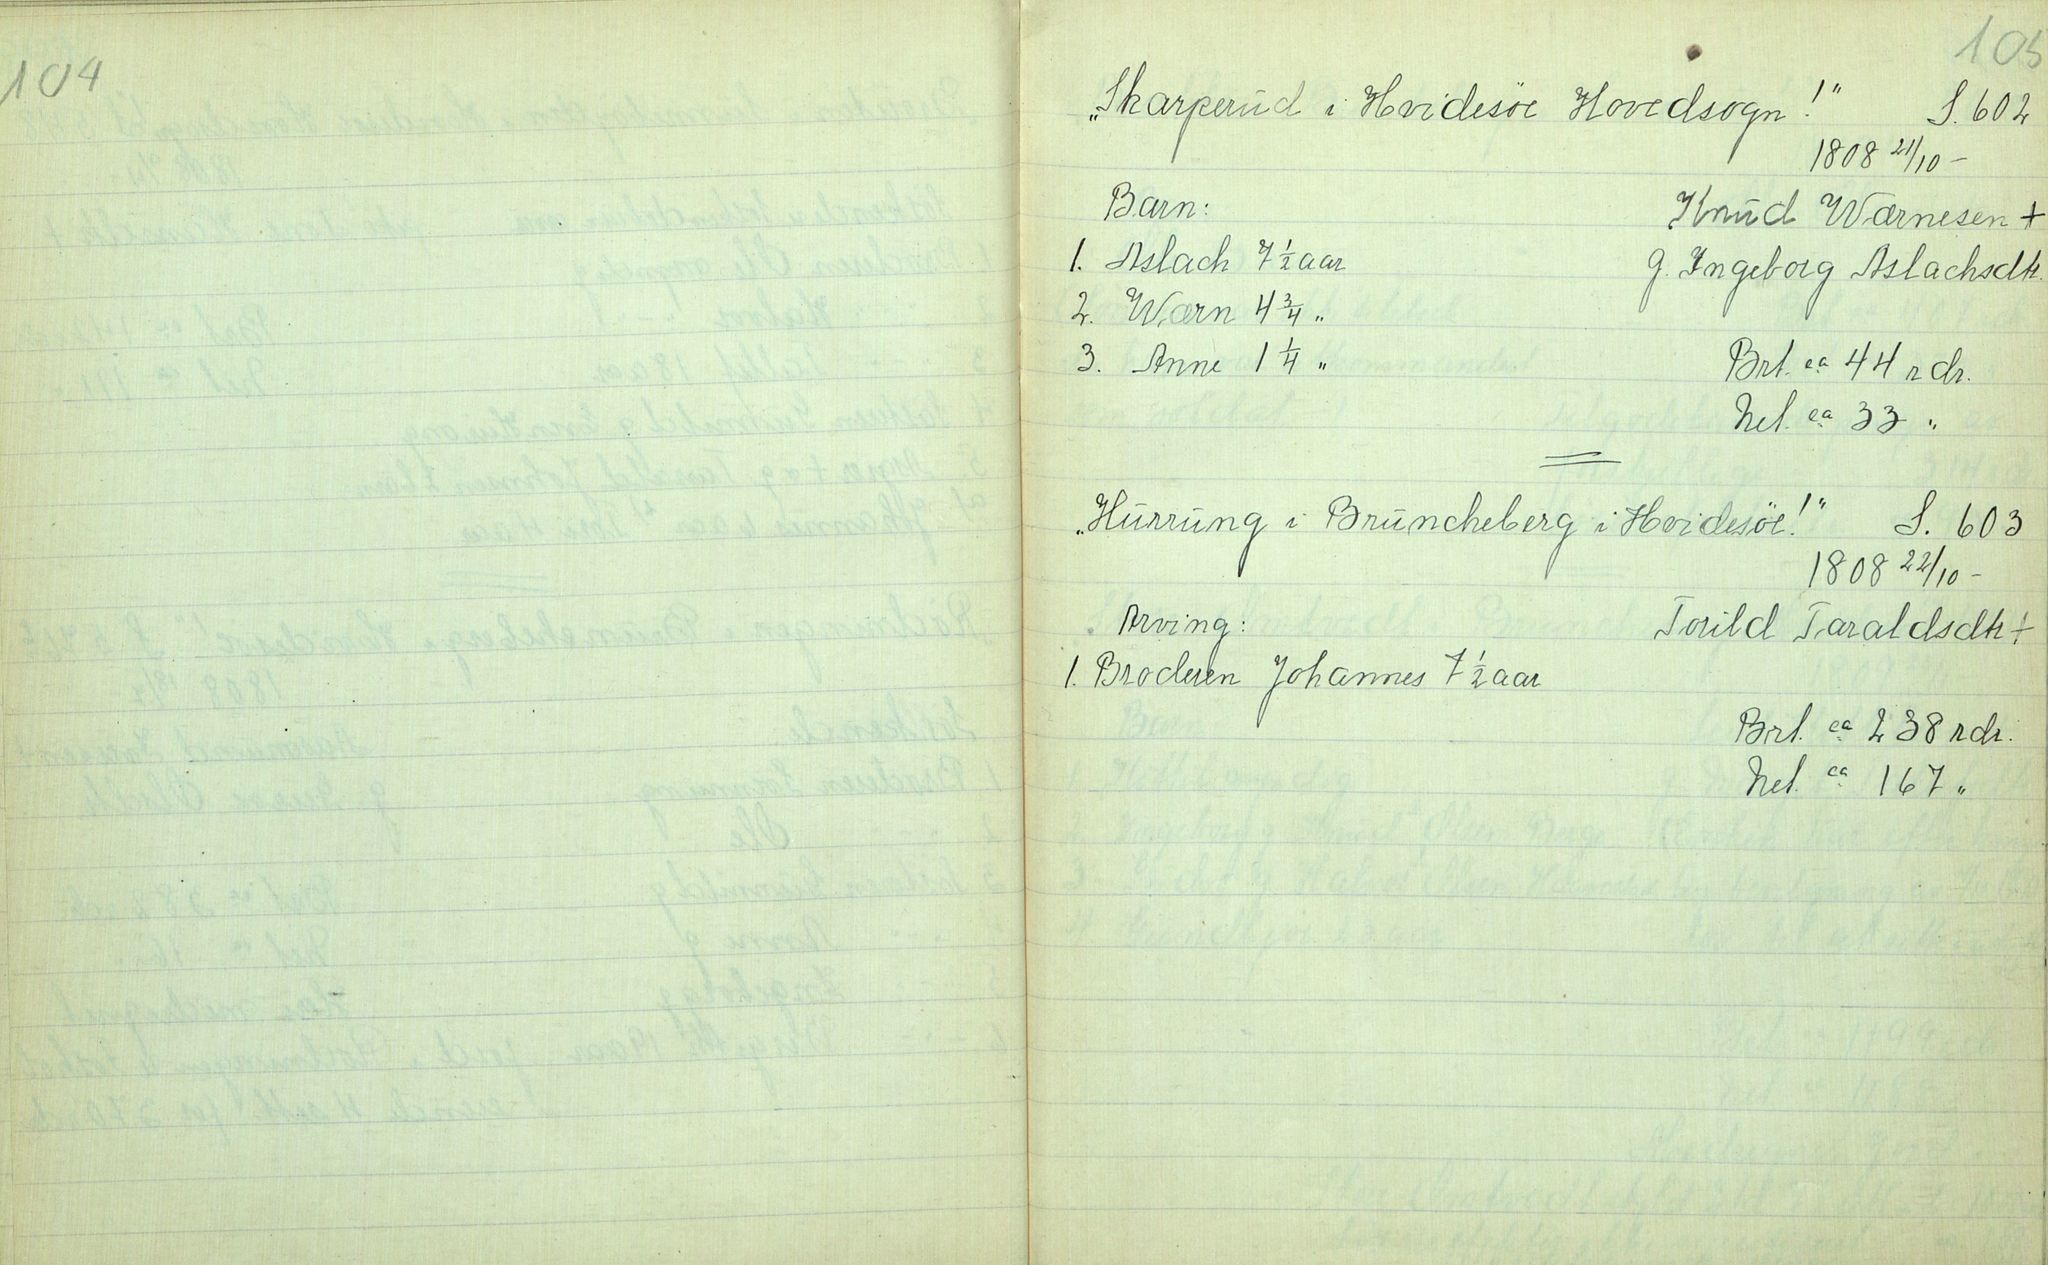 104
105
„Skarperud i Hvidesöe Hovedsogn!" S. 602
1808 21/10 –
Barn: Knud Wærnesen +
1. Aslach 7 1/2 aar g. Ingeborg Aslachsdtr.
2. Wærn 4 3/4 "
3. Anne 1 1/4 " Brt. ca 44 rdr.
Net. ca 33 "
„Hurrung i Bruncheberg i Hvidesöe!" S. 603
1808 22/10 –
Arving: Torild Taraldsdtr +
1. Broderen Johannes 7 1/2 aar
Brt. ca 238 rdr.
Net. ca 167 "